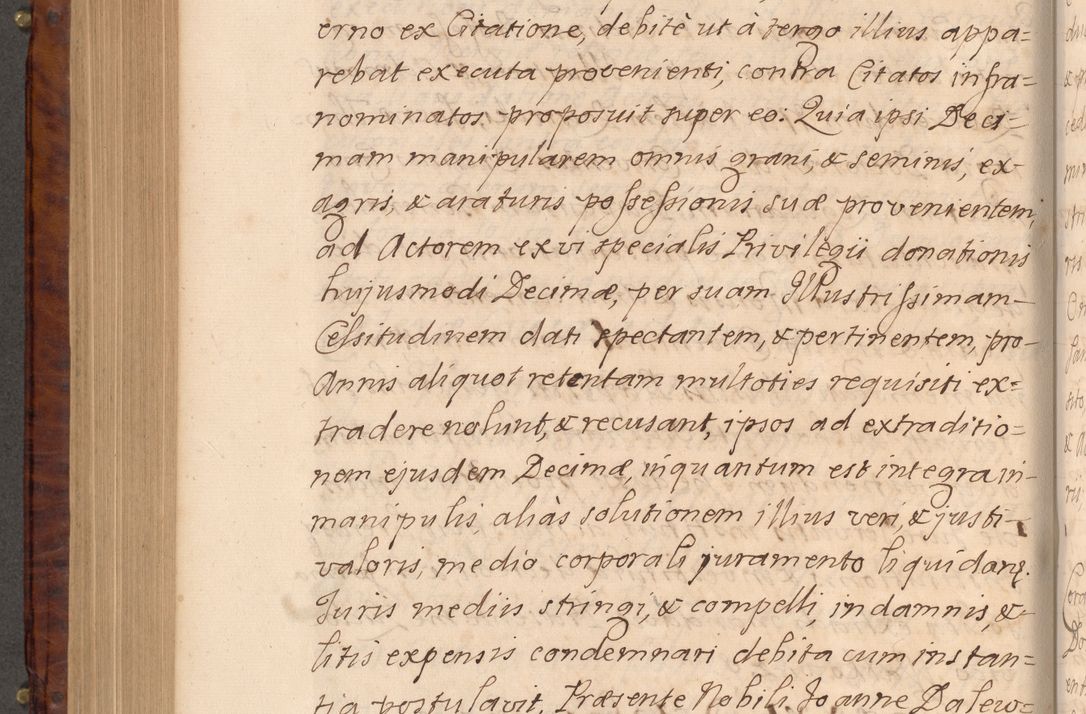 erno ex Citatione, debitè ut à tergo illius appa=
rebat executa provenienti, contra Citatos infra=
nominatos proposuit super eo: Quia ipsi Deci=
mam manipularem omnis grani, & seminis, ex-
agris, & araturis possessionis suæ provenientem,
ad Actorem ex vi specialis Privilegii donationis
hujusmodi Decimæ, per suam Illustrissimam-
Celsitudinem dati spectantem, & pertinentem, pro-
Annis aliquot retentam multoties requisiti ex=
tradere nolunt, & recusant, ipsos ad extraditio=
nem ejusdem Decimæ, inquantum est integra in-
manipulis, aliàs solutionem illius veri, & justi-
valoris, medio corporali juramento liquidand.
Juris mediis stringi, & compelli, in damnis, &-
litis expensis condemnari debita cum instan=
tia postulavit. Præsente Nobili Joanne Dalew=